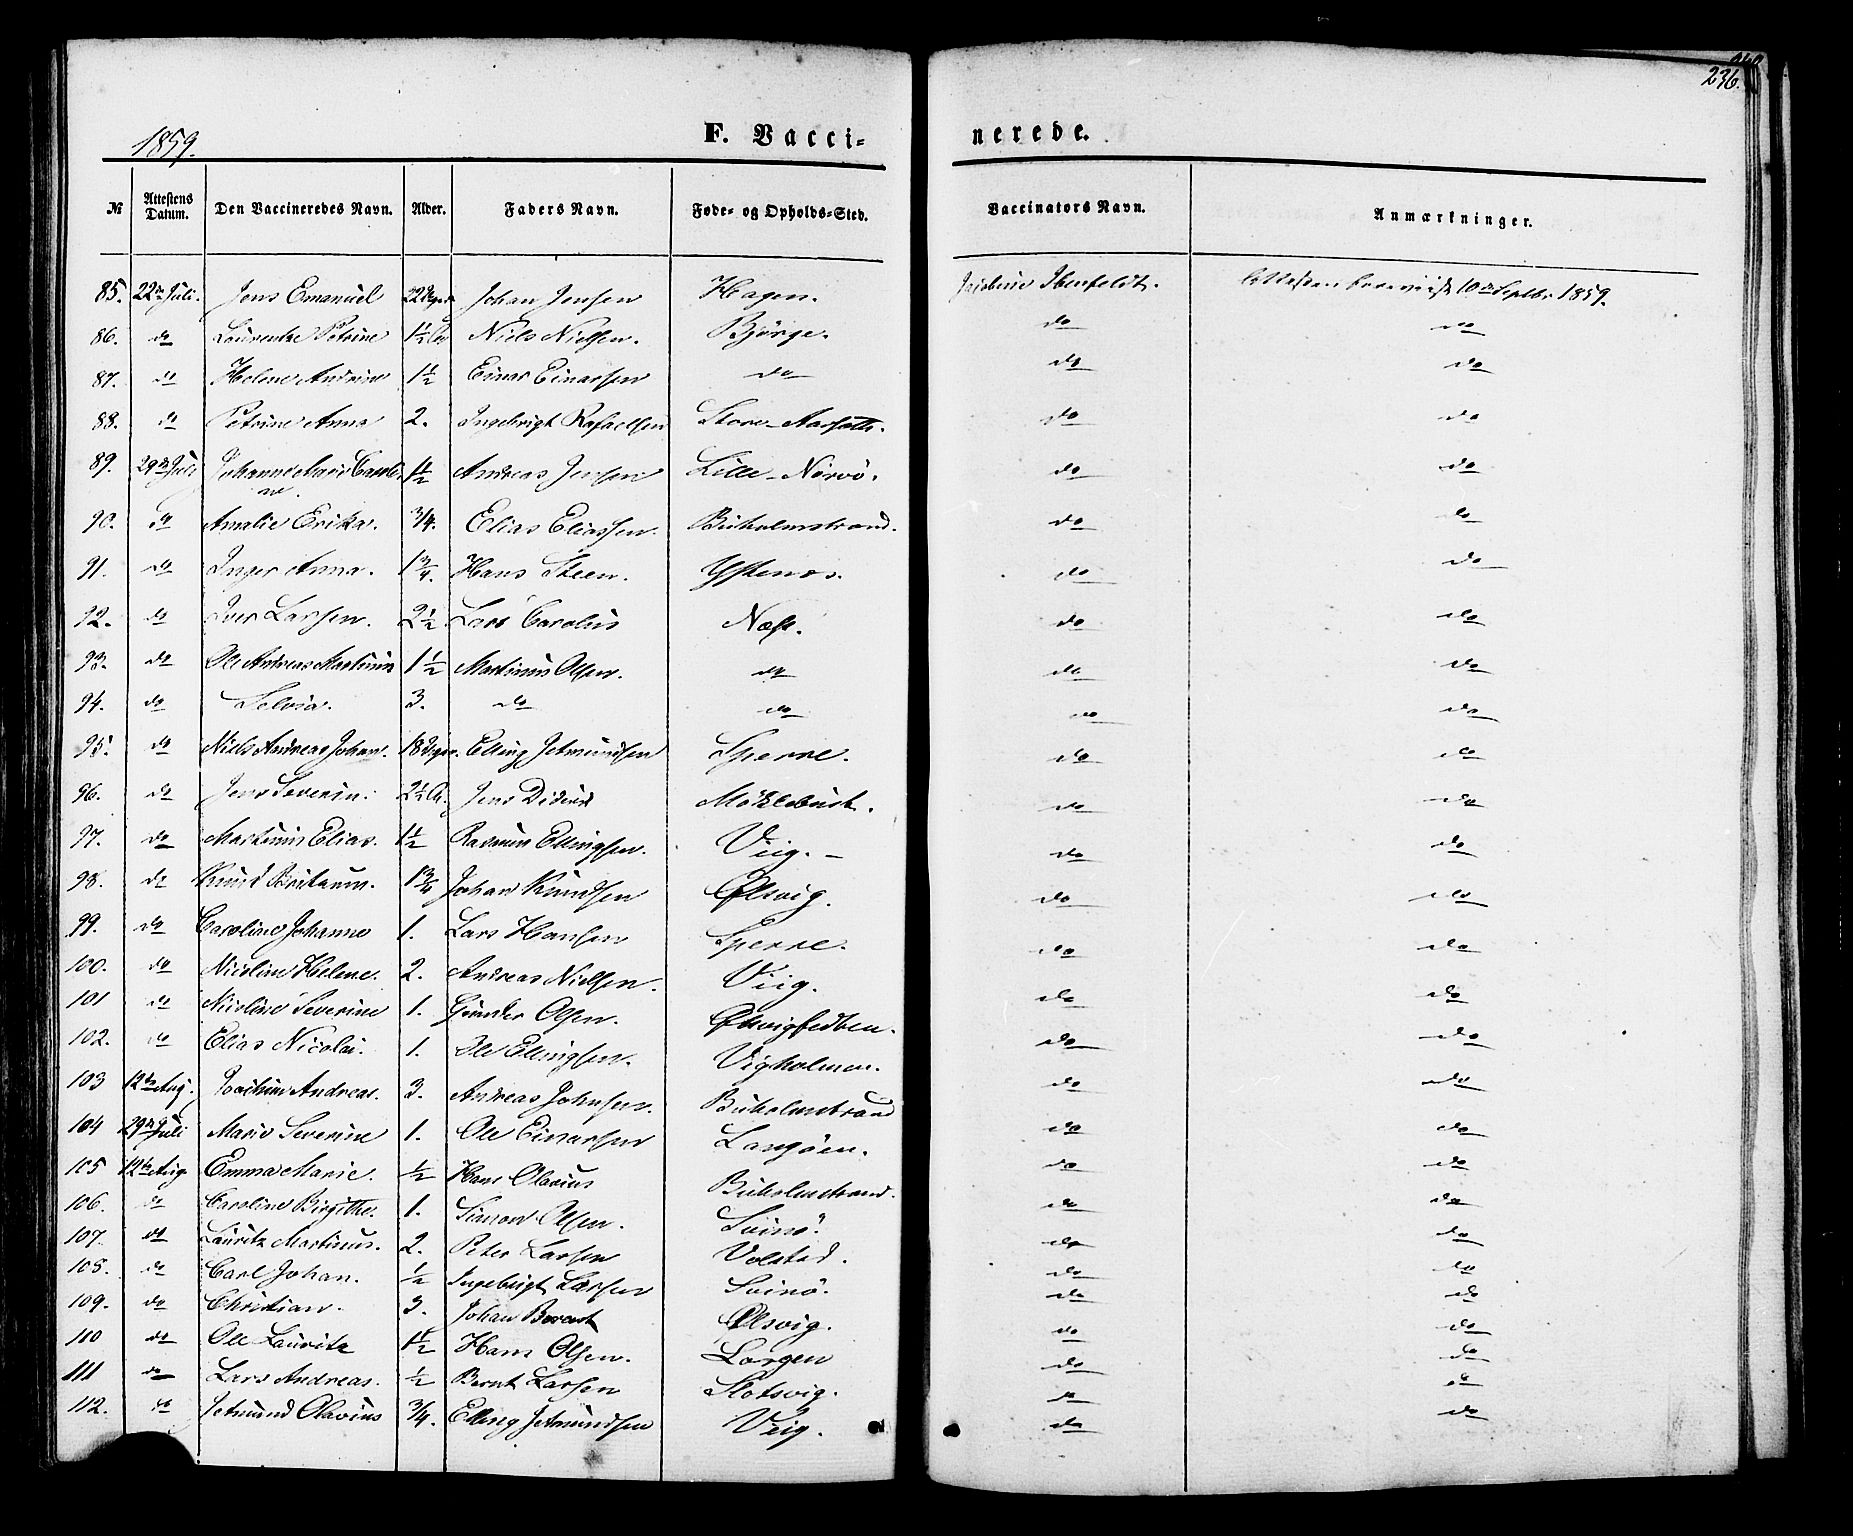 236.
1859.
F. Vacci-
nerede.
№ Attestens Datum. Den Vaccineredes Navn. Alder. Faders Navn. Føde- og Opholds-Sted. Vaccinators Navn. Anmærkninger.
85. 22de Juli. Jens Emanuel Johan Jensen Hagen. 10de Septbr 1859.
86. do Petrine 1½ Niels Nielsen. Björge. do do
87. do Helene Andrine 1½ Einar Einarsen do do do
88. do Petrine Anna 2. Ingebrigt Rafaelsen Store- do do
89. 29de Juli Johanne Marie 1½ Andreas Jensen Lille-Nörvö. do do
90. do Amalie Erika. 3/4. Elias Eliassen. Buholmstrand. do do
91. do Inger Anna. 1 3/4. Hans Steen. Ystenes. do do
92. do Iver Larsen. 2½ Lars Carolus Næss. do do
93. do Ole Andreas Martinus 1½ Martinus Olsen. do do do
94. do 3. do do do do
95. do Niels Andreas Johan. 18 Elling Jetmundsen Sperre. do do
96. do Jens Severin. 2½ Jens Didrik Möklebust. do do
97. do Martinus Elias. 1½ Rasmus Ellingsen. Viig. do do
98. do Knud 1 3/4 Johan Knudsen Ølsvig. do do
99. do Caroline Johanne 1. Lars Hansen Sperre. do do
100. do Nicoline Helene. 2. Andreas Nielsen. Viig. do do
101 do Nicoline Severine 1. Gunder Olsen. do do
102. do Elias Nicolai. 1. Ole Ellingsen. Vigholmen. do do
103 12te Aug. Joachim Andreas. 3. Andreas Johnsen. Buholmstrand do do
104 29de Juli Marie Severine 1. Ole Einarsen Langöen. do do
105 12te Aug Emma Marie. ½ Hans Olavius Buholmstrand. do do
106. do Caroline Birgithe. 1. Simon Olsen. Svinö. do do
107. do Lauritz Martinus. 2. Peter Larsen Volstad. do do
108. do Carl Johan. ½ Ingebrigt Larsen Svinö. do do
109. do Christian. 3. Johan Berent Ølsvig. do do
110 do Ole Lauritz 1½ Hans Olsen. Lorgen do do
111 do Lars Andreas. ½ Bernt Larsen Slotsvig. do do
112. do Jetmund Olavius 3/4. Elling Jetmundsen Viig. do do